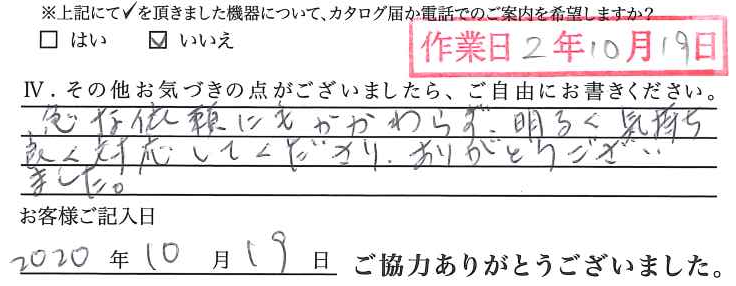 ※上記にて✓を頂きました機器について、カタログ届か電話でのご案内を希望しますか？
□ はい ☑ いいえ
作業日 2年10月19日
Ⅳ．その他お気づきの点がございましたら、ご自由にお書きください。
急な依頼にもかかわらず、明るく気持ち
良く対応してくださり、ありがとうござい
ました。
お客様ご記入日
2020 年 10 月 19 日 ご協力ありがとうございました。